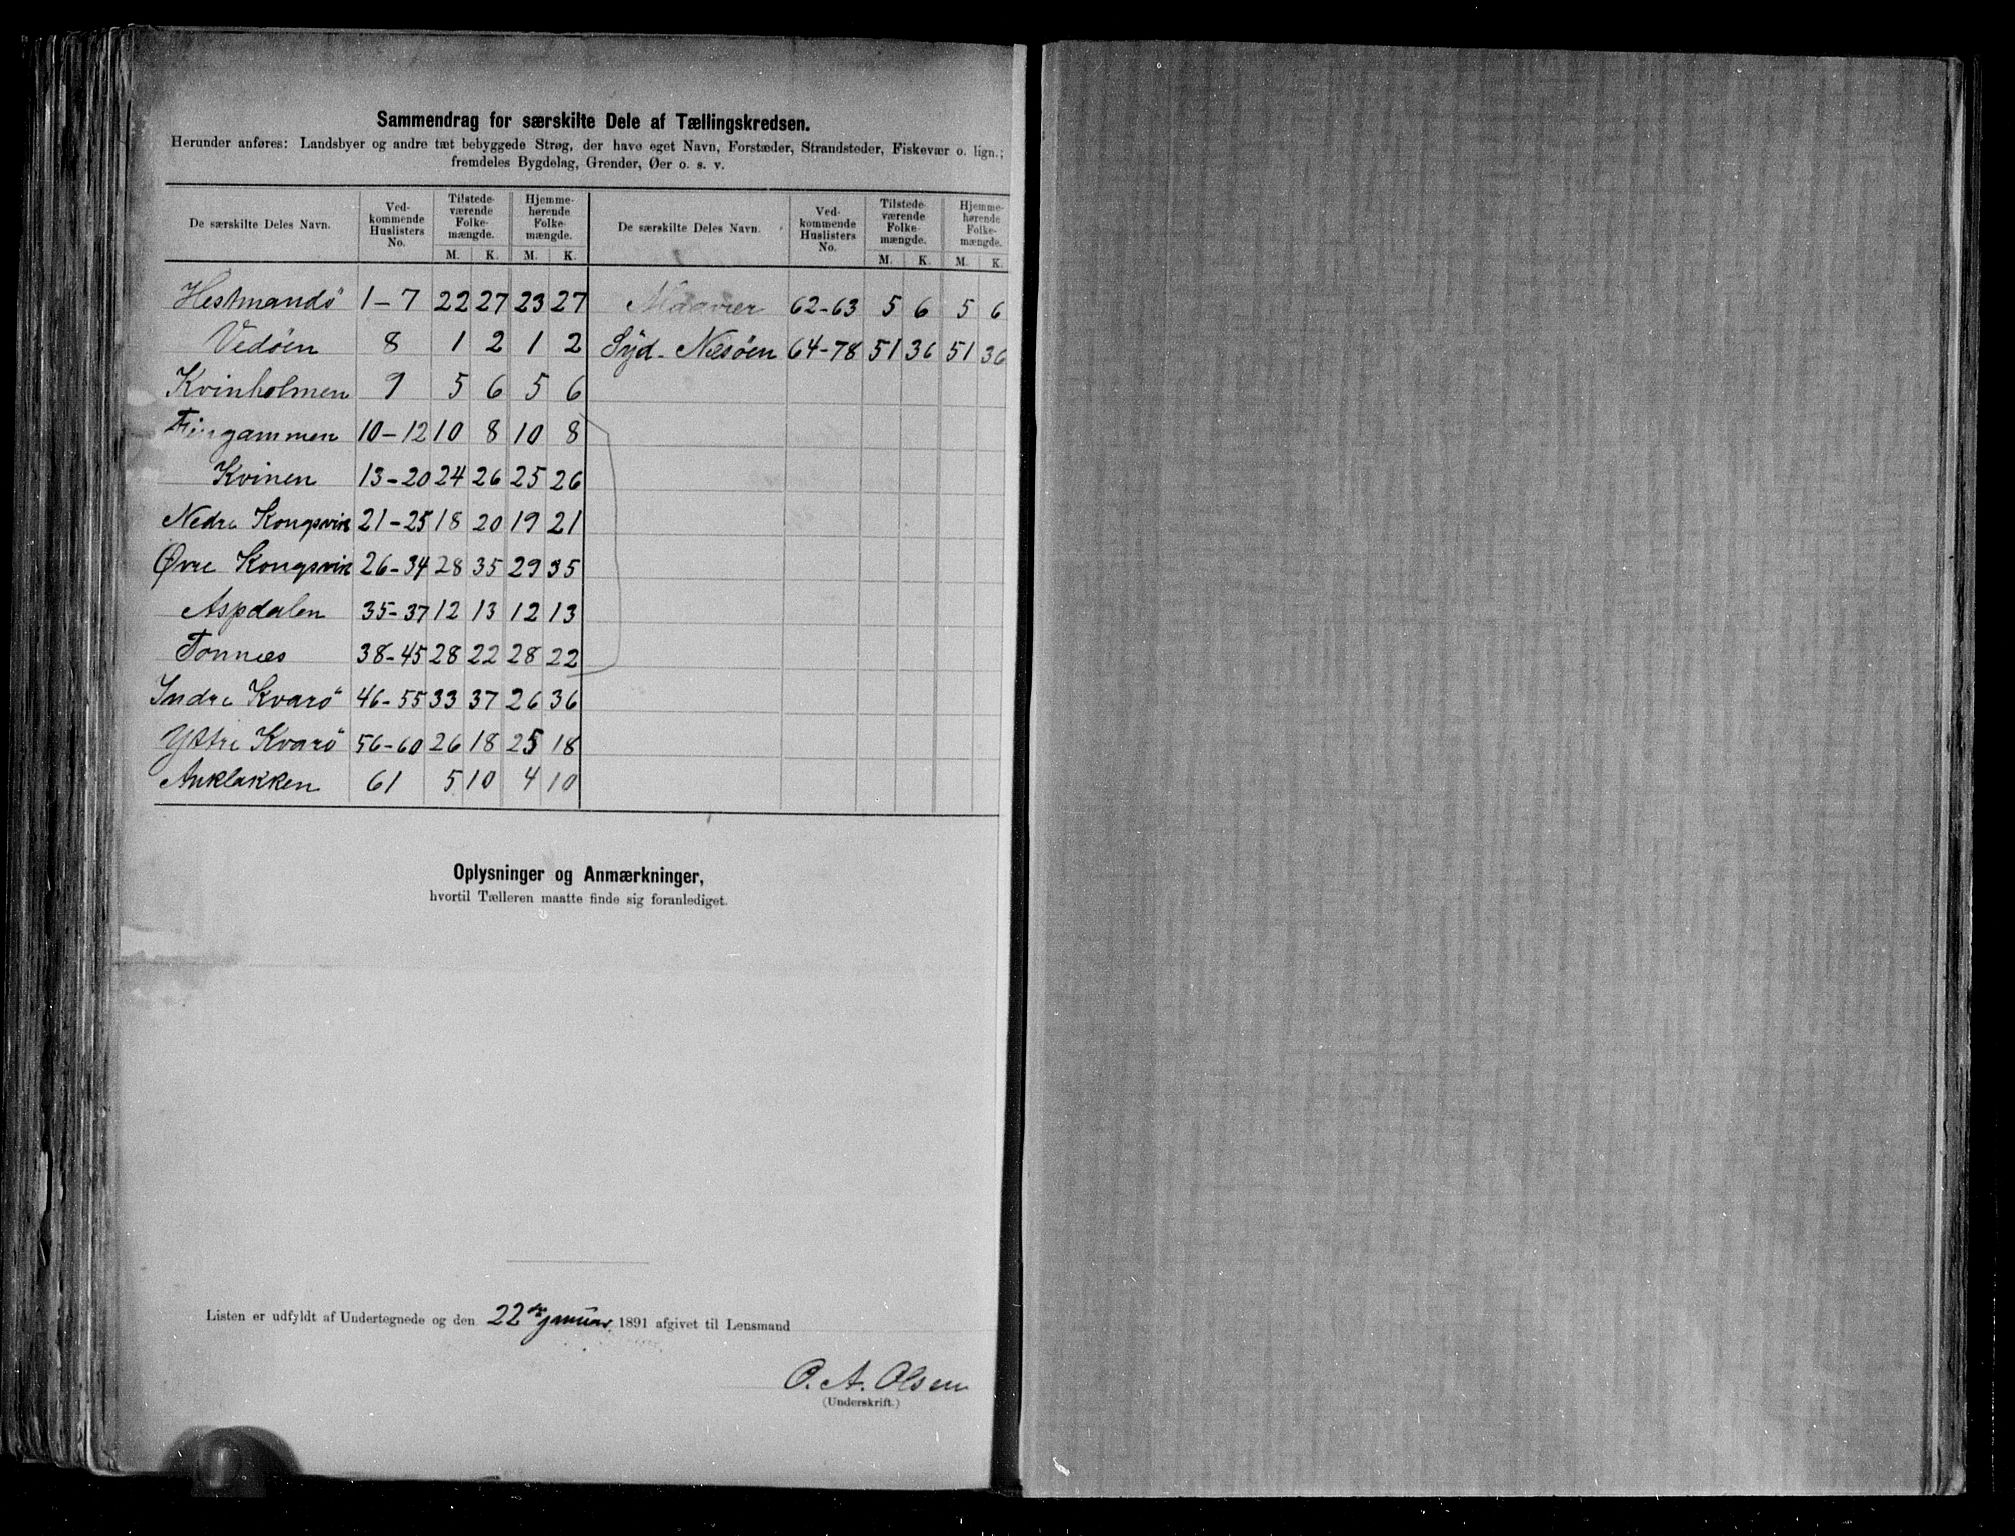 Sammendrag for særskilte Dele af Tællingskredsen.
Herunder anføres: Landsbyer og andre tæt bebyggede Strøg, der have eget Navn, Forstæder, Strandsteder, Fiskevær o. lign.;
fremdeles Bygdelag, Grender, Øer o. s. v.
De særskilte Deles Navn. Ved-kommende Huslisters No. Tilstede-værende Folke-mængde. M. K. Hjemme-hørende Folke-mængde. M. K.
De særskilte Deles Navn. Ved-kommende Huslisters No. Tilstede-værende Folke-mængde. M. K. Hjemme-hørende Folke-mængde. M. K.
Hestmandö 1-7 22 27 23 27
Vedöen 8 1 2 1 2
Kvinholmen 9 5 6 5 6
Fingammen 10-12 10 8 10 8
Kvinen 13-20 24 26 25 26
Nedre Kongsvik 21-25 18 20 19 21
Øvre Kongsvik 26-34 28 35 29 35
Aspdalen 35-37 12 13 12 13
Tonnæs 38-45 28 22 28 22
Indre Kvarö 46-55 33 37 26 36
Ystre Kvarö 56-60 26 18 25 18
Anklakken 61 5 10 4 10
62-63 5 6 5 6
Syd-Næsöen 64-78 51 36 51 36
Oplysninger og Anmærkninger,
hvortil Tælleren maatte finde sig foranlediget.
Listen er udfyldt af Undertegnede og den 22de januar 1891 afgivet til Lensmand
O. A. Olsen
(Underskrift.)